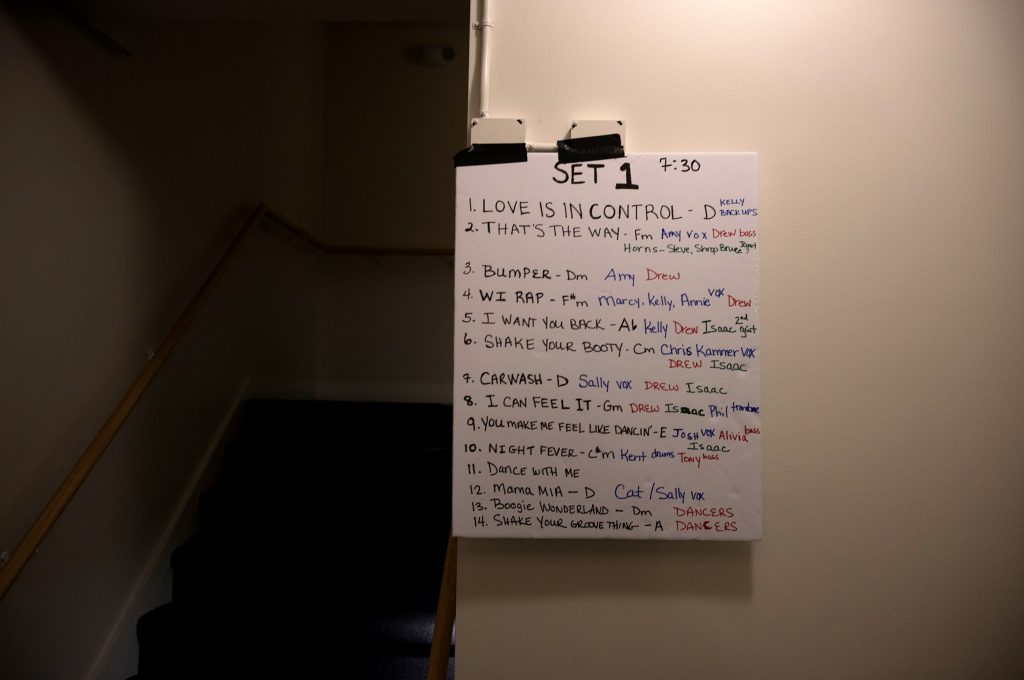 SET 1 7:30
1. LOVE IS IN CONTROL - D KELLY BACKUPS
2. THAT'S THE WAY - Fm Amy vox Drew bass
Horns - Steve, Shrop Bruce
3. BUMPER - Dm Amy Drew
4. WI RAP - F#m Marcy, Kelly, Annie vox Drew
5. I WANT YOU BACK - Ab Kelly Drew Isaac 2nd guit
6. SHAKE YOUR BOOTY - Cm Chris Kammer vox
DREW Isaac
7. CARWASH - D Sally vox DREW Isaac
8. I CAN FEEL IT - Gm DREW Isaac Phil trombone
9. YOU MAKE ME FEEL LIKE DANCIN' - E JOSH vox Alivia bass
Isaac
10. NIGHT FEVER - C#m Kent drums Tony bass
11. DANCE WITH ME
12. Mama MIA - D Cat / Sally vox
13. Boogie WONDERLAND - Dm DANCERS
14. SHAKE YOUR GROOVE THING - A DANCERS